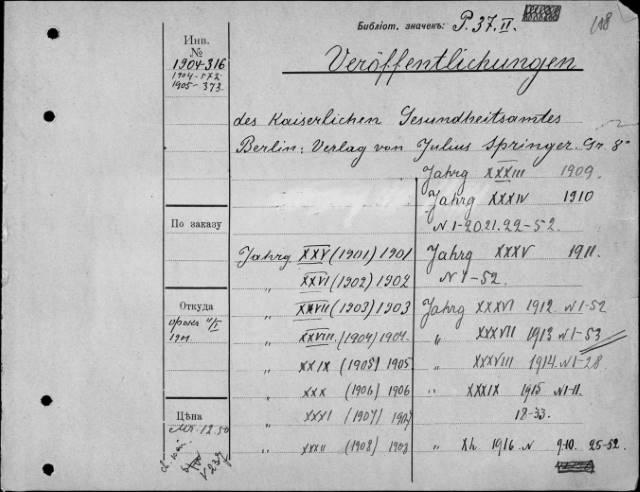 Библіот. значекъ: P. 37. II.
118
Инв.
№
1904-316
1904-572
1905-373.
Veröffentlichungen
des Kaiserlichen Gesundheitsamtes
Berlin: Verlag von Julius Springer. Gr. 8°
Jahrg XXXIII 1909.
Jahrg XXXIV 1910
N 1-20.21.22-52.
По заказу
Jahrg. XXV (1901) 1901
„ XXVI (1902) 1902
„ XXVII (1903) 1903
„ XXVIII. (1904) 1904.
„ XXIX (1905) 1905
„ XXX (1906) 1906
„ XXXI (1907) 1907
„ XXXII (1908) 1908
Jahrg XXXV 1911.
N 1-52.
Jahrg XXXVI 1912. N 1-52
„ XXXVII 1913 N 1-53
„ XXXVIII 1914. N 1-28
„ XXXIX 1915 N 1-11.
18-33.
„ XL. 1916 N 9.10. 25-52.
Откуда
1901.
Цѣна
12.50
V 237